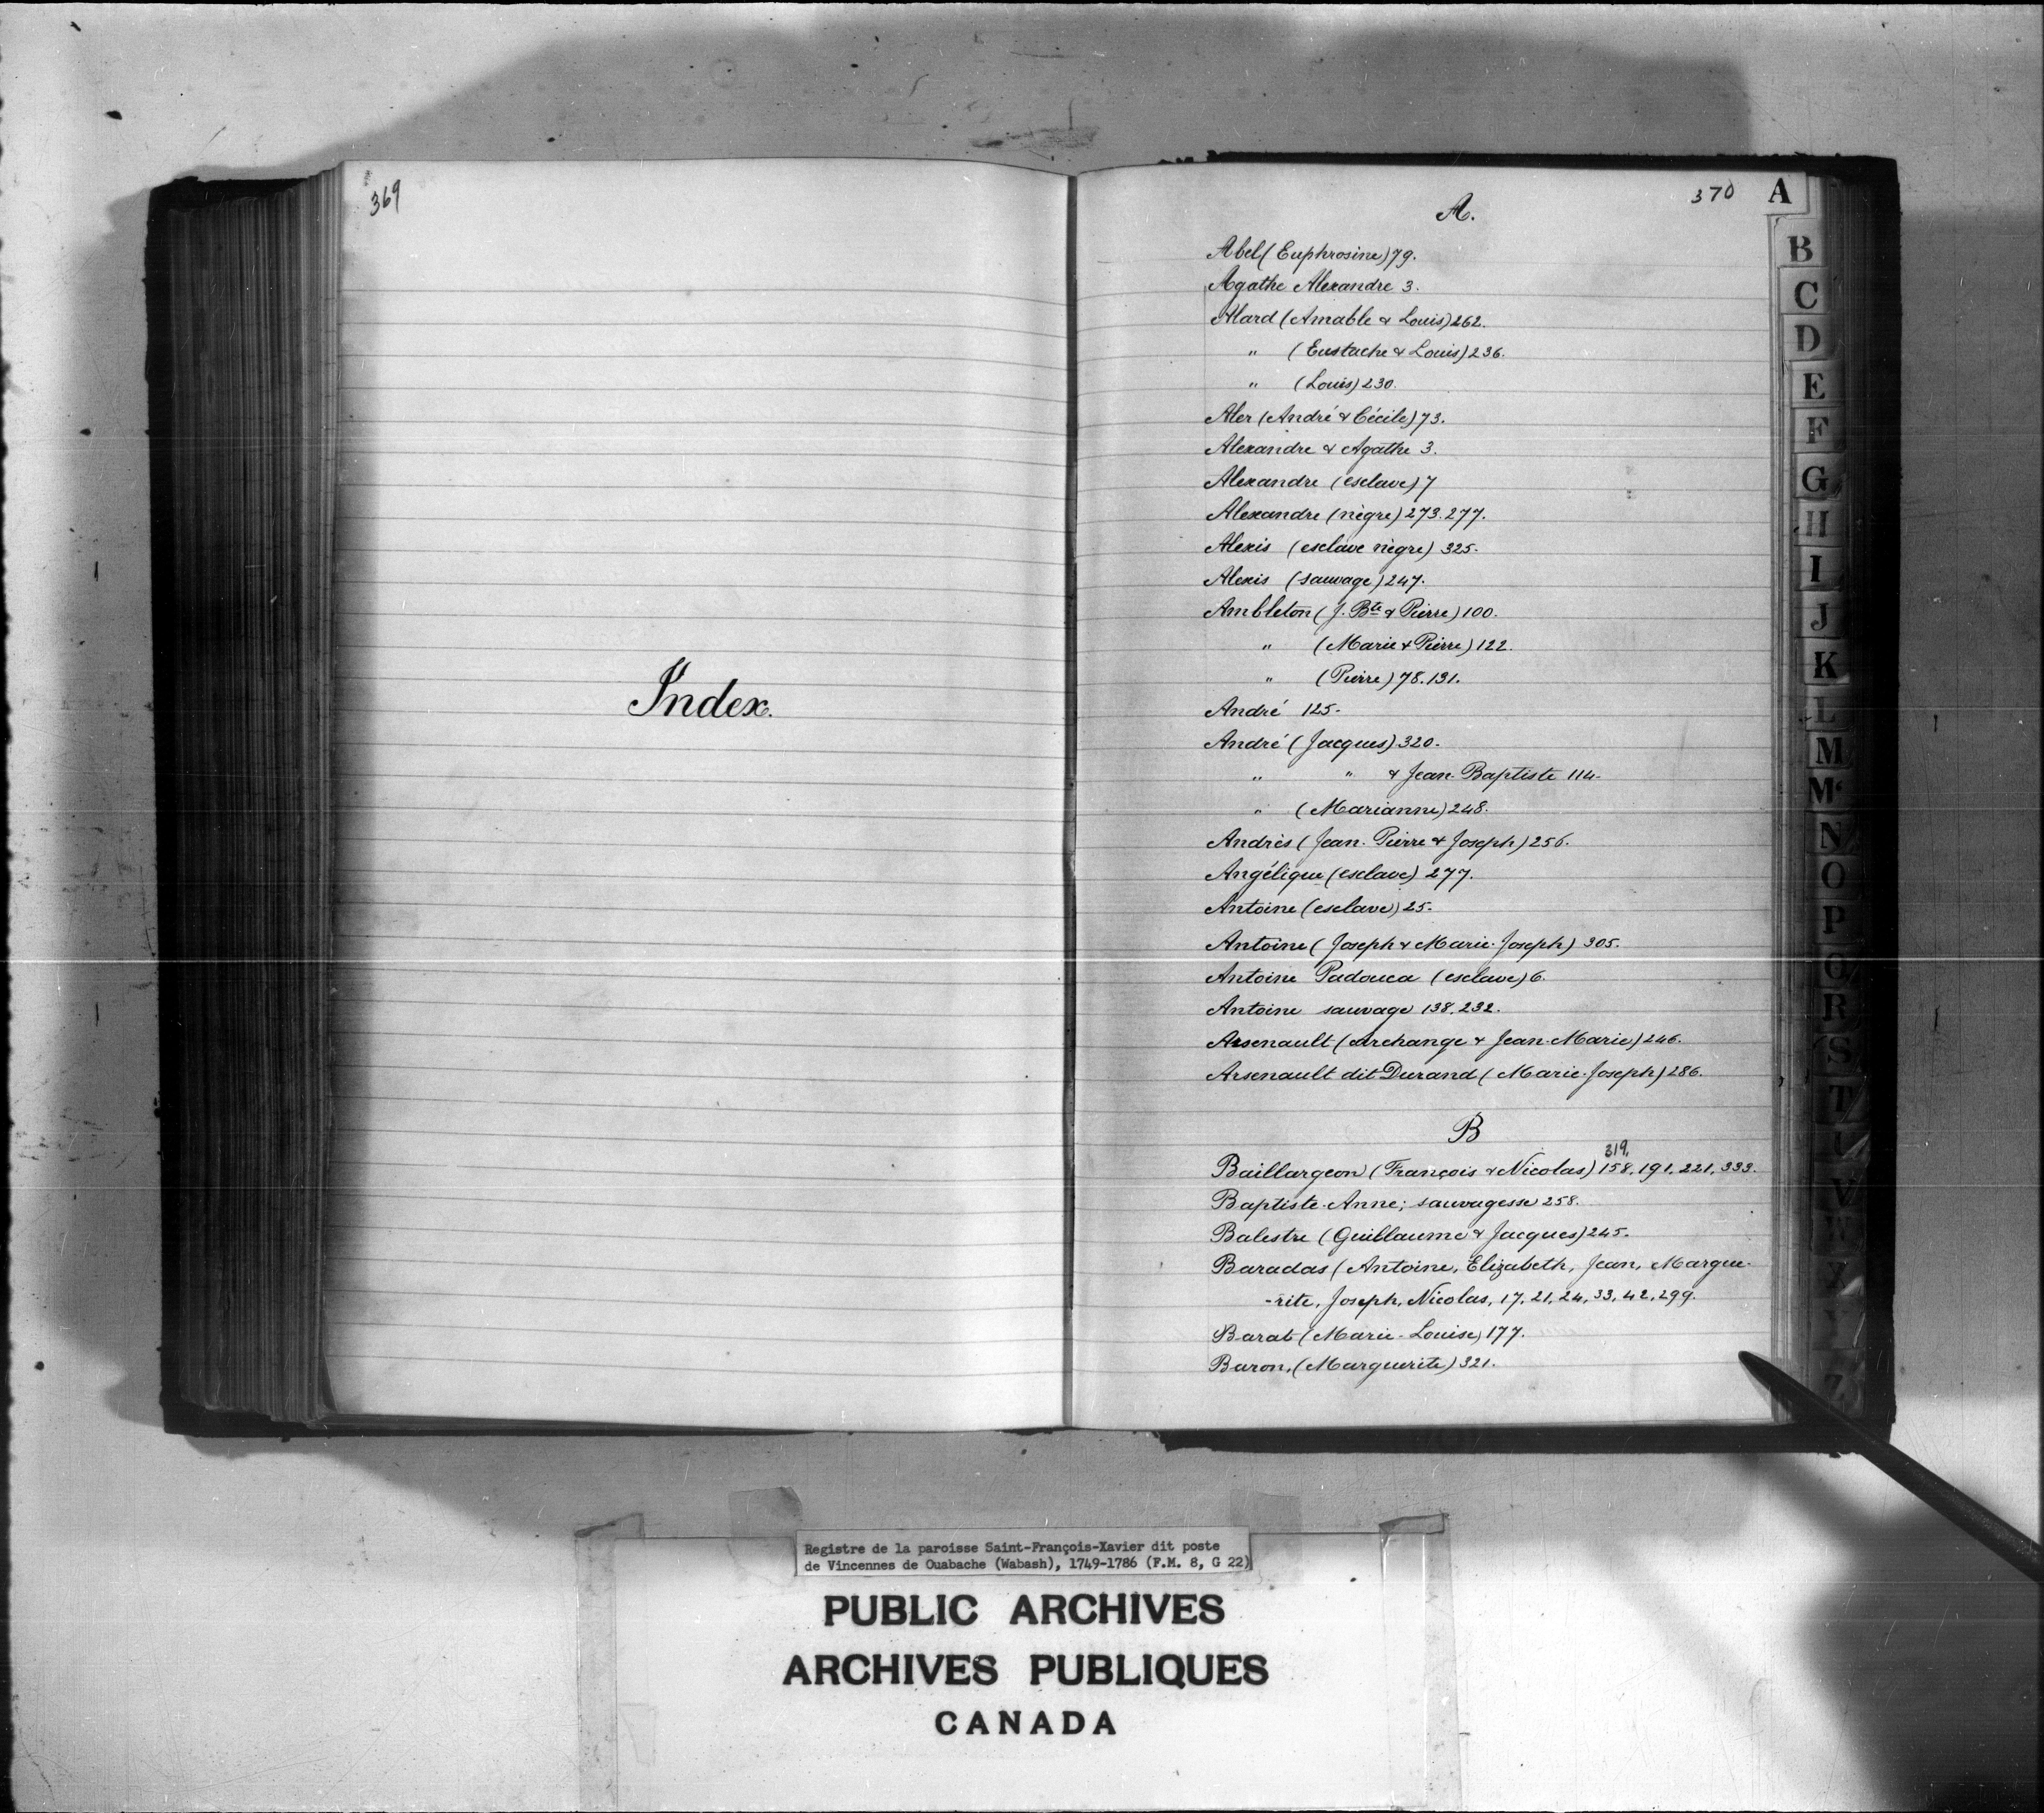 369
Index.
370
A.
Abel (Euphrosine) 79.
Agathe Alexandre 3.
Alard (Amable & Louis) 262.
" (Eustache & Louis) 236.
" (Louis) 230.
Aler (André & Cécile) 73.
Alexandre & Agathe 3.
Alexandre (esclave) 7
Alexandre (nègre) 273. 277.
Alexis (esclave nègre) 325.
Alexis (sauvage) 247.
Ambleton (J. Bte & Pierre) 100.
" (Marie & Pierre) 122.
" (Pierre) 78. 131.
André 125.
André (Jacques) 320.
" " & Jean-Baptiste 114.
" (Marianne) 248.
Andrès (Jean-Pierre & Joseph) 256.
Angélique (esclave) 277.
Antoine (esclave) 25.
Antoine (Joseph & Marie-Joseph) 305.
Antoine Padouca (esclave) 6.
Antoine sauvage 138, 232.
Arsenault (Archange & Jean-Marie) 246.
Arsenault dit Durand (Marie-Joseph) 286.
B
319,
Baillargeon (François & Nicolas) 158, 191, 221, 333.
Baptiste-Anne; sauvagesse 258.
Balestre (Guillaume & Jacques) 245.
Baradas (Antoine, Elizabeth, Jean, Margue-
-rite, Joseph, Nicolas, 17, 21, 24, 33, 42, 299.
Barat (Marie-Louise) 177.
Baron, (Marguerite) 321.
A
B
C
D
E
F
G
H
I
J
K
L
M
Mc
N
O
P
Q
R
S
T
U
V
W
X
Z
Registre de la paroisse Saint-François-Xavier dit poste
de Vincennes de Ouabache (Wabash), 1749-1786 (F.M. 8, G 22)
PUBLIC ARCHIVES
ARCHIVES PUBLIQUES
CANADA